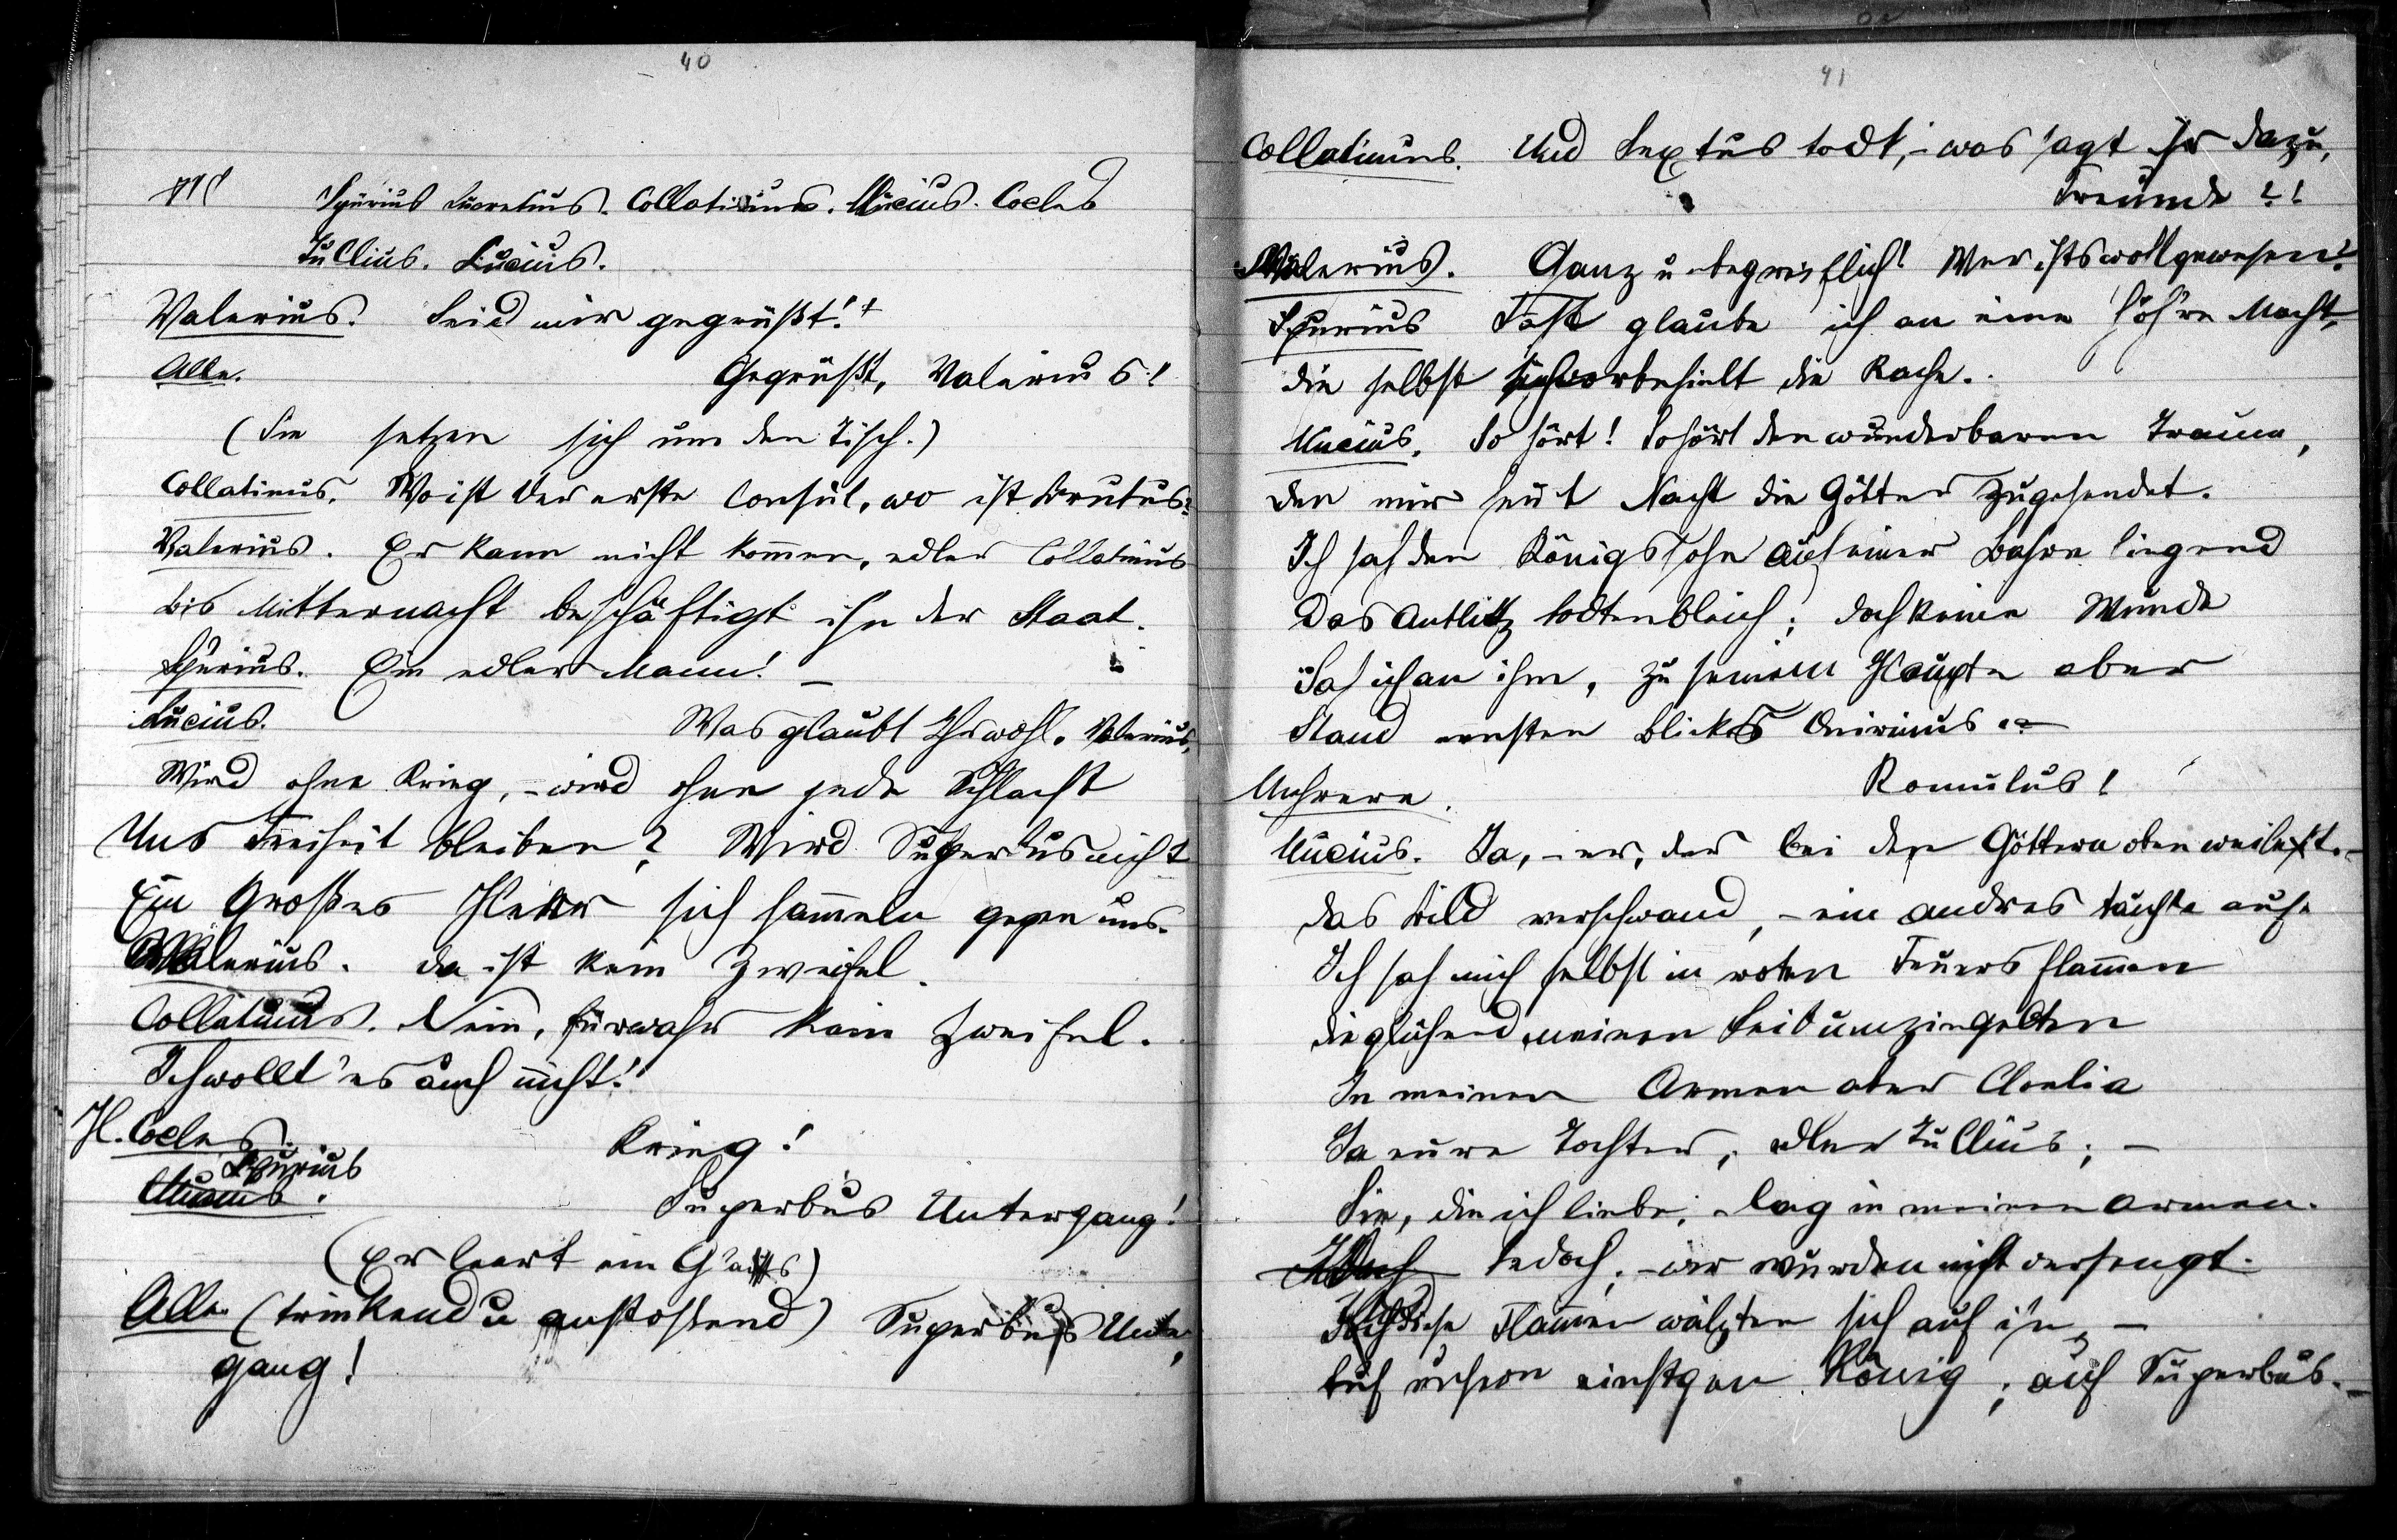 40
Spurius Lucretius. Collatinus. Mucius. Cocles
Tullius. Lucius.
Valerius. Seid mir gegrüßt!
Alle. Gegrüßt, Valerius!
(Sie setzen sich um den Tisch.)
Collatinus. Wo ist der erste Consul, wo ist Brutus?
Valerius. Er kann nicht kommen, edler Collatinus
bis Mitternacht beschäftigt ihn der Staat.
Spurius. Ein edler Mann! –
Lucius. Was glaubt Ihr wohl, Valerius,
Wird ohne Krieg, – wird ohne jede Schlacht
Uns Freiheit bleiben? Wird Superbus nicht
Ein Großes Heer sich sammeln gegen uns.
Valerius. da ist kein Zweifel.
Collatinus. Nein, fürwahr kein Zweifel.
Ich wollt' es auch nicht!
H. Cocles. Krieg!
Spurius
Mucius. Superbus Untergang!
(Er leert ein Glas)
Alle (trinkend u anstoßend) Superbus Unter,
gang!
41
Collatinus. Und Sextus todt, – was sagt ihr dazu,
Freunde?!
Valerius. Ganz unbegreiflich! Wer ists wohl gewesen?
Spurius Fast glaube ich an eine höh're Macht,
die selbst sich vorbehielt die Rache.
Mucius. So hört! So hört den wunderbaren Traum,
den mir heut Nacht die Götter zugesendet.
Ich sah den Königssohn auf einer Bahre liegend
Das Antlitz todtenbleich; doch keine Wunde
Sah ich an ihm, zu seinem Haupte aber
Stand ernsten Blickes Quirinus. –
Mehrere. Romulus!
Mucius. Ja, – er, der bei den Göttern oben weilt. –
das Bild verschwand, – ein andres tauchte auf.
Ich sah mich selbst in roten Feuersflammen
die glühend meinen Leib umzingelten
In meinen Armen aber Cloelia
Ja eure Tochter, edler Tullius; –
Sie, die ich liebe, – lag in meinen Armen.
Jedoch, – wir wurden nicht versengt.
diese Flammen wälzten sich auf ihn, –
Auf unsern einstgen König; auf Superbus. –